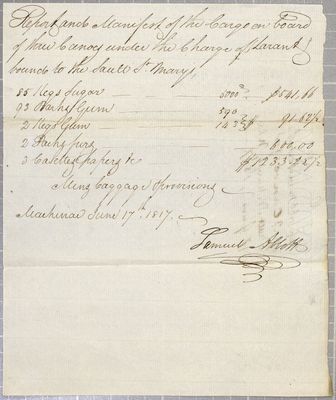 Report and Manifest of the Cargo on Board
of three Canoes under the Charge of
bound to the Sault St. Marys
85 Kegs Sugar — 5000 — $541,66
93 Gum — 590
2 Kegs Gum — 143 — 91.62½
2 Packs furs — 600,00
3 Casettes papers &c — $1233.22½
Mens baggage & provisions
Mackinac June 17th. 1817.
Samuel Abbott